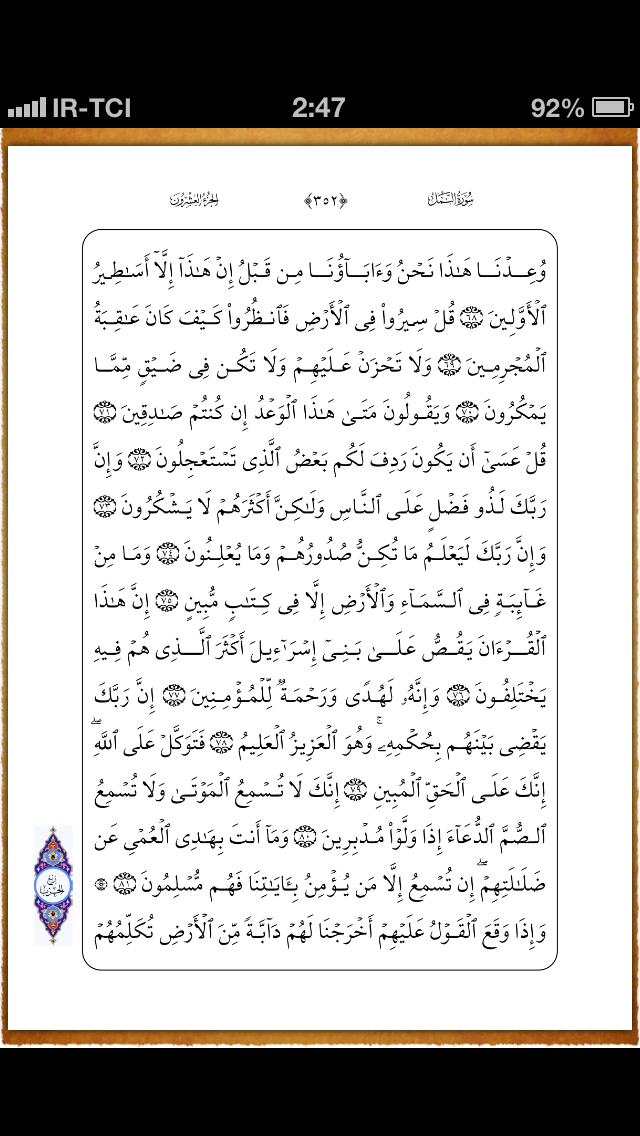 IR-TCI 2:47 92%
سُورَةُ النَّمْل ﴿٣٥٢﴾ الجُزءُ العِشْرُونَ
وُعِدْنَا هَٰذَا نَحْنُ وَءَابَآؤُنَا مِن قَبْلُ إِنْ هَٰذَآ إِلَّآ أَسَٰطِيرُ
ٱلْأَوَّلِينَ ٦٨ قُلْ سِيرُوا۟ فِى ٱلْأَرْضِ فَٱنظُرُوا۟ كَيْفَ كَانَ عَٰقِبَةُ
ٱلْمُجْرِمِينَ ٦٩ وَلَا تَحْزَنْ عَلَيْهِمْ وَلَا تَكُن فِى ضَيْقٍ مِّمَّا
يَمْكُرُونَ ٧٠ وَيَقُولُونَ مَتَىٰ هَٰذَا ٱلْوَعْدُ إِن كُنتُمْ صَٰدِقِينَ ٧١
قُلْ عَسَىٰٓ أَن يَكُونَ رَدِفَ لَكُم بَعْضُ ٱلَّذِى تَسْتَعْجِلُونَ ٧٢ وَإِنَّ
رَبَّكَ لَذُو فَضْلٍ عَلَى ٱلنَّاسِ وَلَٰكِنَّ أَكْثَرَهُمْ لَا يَشْكُرُونَ ٧٣
وَإِنَّ رَبَّكَ لَيَعْلَمُ مَا تُكِنُّ صُدُورُهُمْ وَمَا يُعْلِنُونَ ٧٤ وَمَا مِنْ
غَآئِبَةٍ فِى ٱلسَّمَآءِ وَٱلْأَرْضِ إِلَّا فِى كِتَٰبٍ مُّبِينٍ ٧٥ إِنَّ هَٰذَا
ٱلْقُرْءَانَ يَقُصُّ عَلَىٰ بَنِىٓ إِسْرَٰٓءِيلَ أَكْثَرَ ٱلَّذِى هُمْ فِيهِ
يَخْتَلِفُونَ ٧٦ وَإِنَّهُۥ لَهُدًى وَرَحْمَةٌ لِّلْمُؤْمِنِينَ ٧٧ إِنَّ رَبَّكَ
يَقْضِى بَيْنَهُم بِحُكْمِهِۦ ۚ وَهُوَ ٱلْعَزِيزُ ٱلْعَلِيمُ ٧٨ فَتَوَكَّلْ عَلَى ٱللَّهِ ۖ
إِنَّكَ عَلَى ٱلْحَقِّ ٱلْمُبِينِ ٧٩ إِنَّكَ لَا تُسْمِعُ ٱلْمَوْتَىٰ وَلَا تُسْمِعُ
ٱلصُّمَّ ٱلدُّعَآءَ إِذَا وَلَّوْا۟ مُدْبِرِينَ ٨٠ وَمَآ أَنتَ بِهَٰدِى ٱلْعُمْىِ عَن
ضَلَٰلَتِهِمْ ۖ إِن تُسْمِعُ إِلَّا مَن يُؤْمِنُ بِـَٔايَٰتِنَا فَهُم مُّسْلِمُونَ ٨١ ۞
وَإِذَا وَقَعَ ٱلْقَوْلُ عَلَيْهِمْ أَخْرَجْنَا لَهُمْ دَآبَّةً مِّنَ ٱلْأَرْضِ تُكَلِّمُهُمْ
رُبع
الحِزب